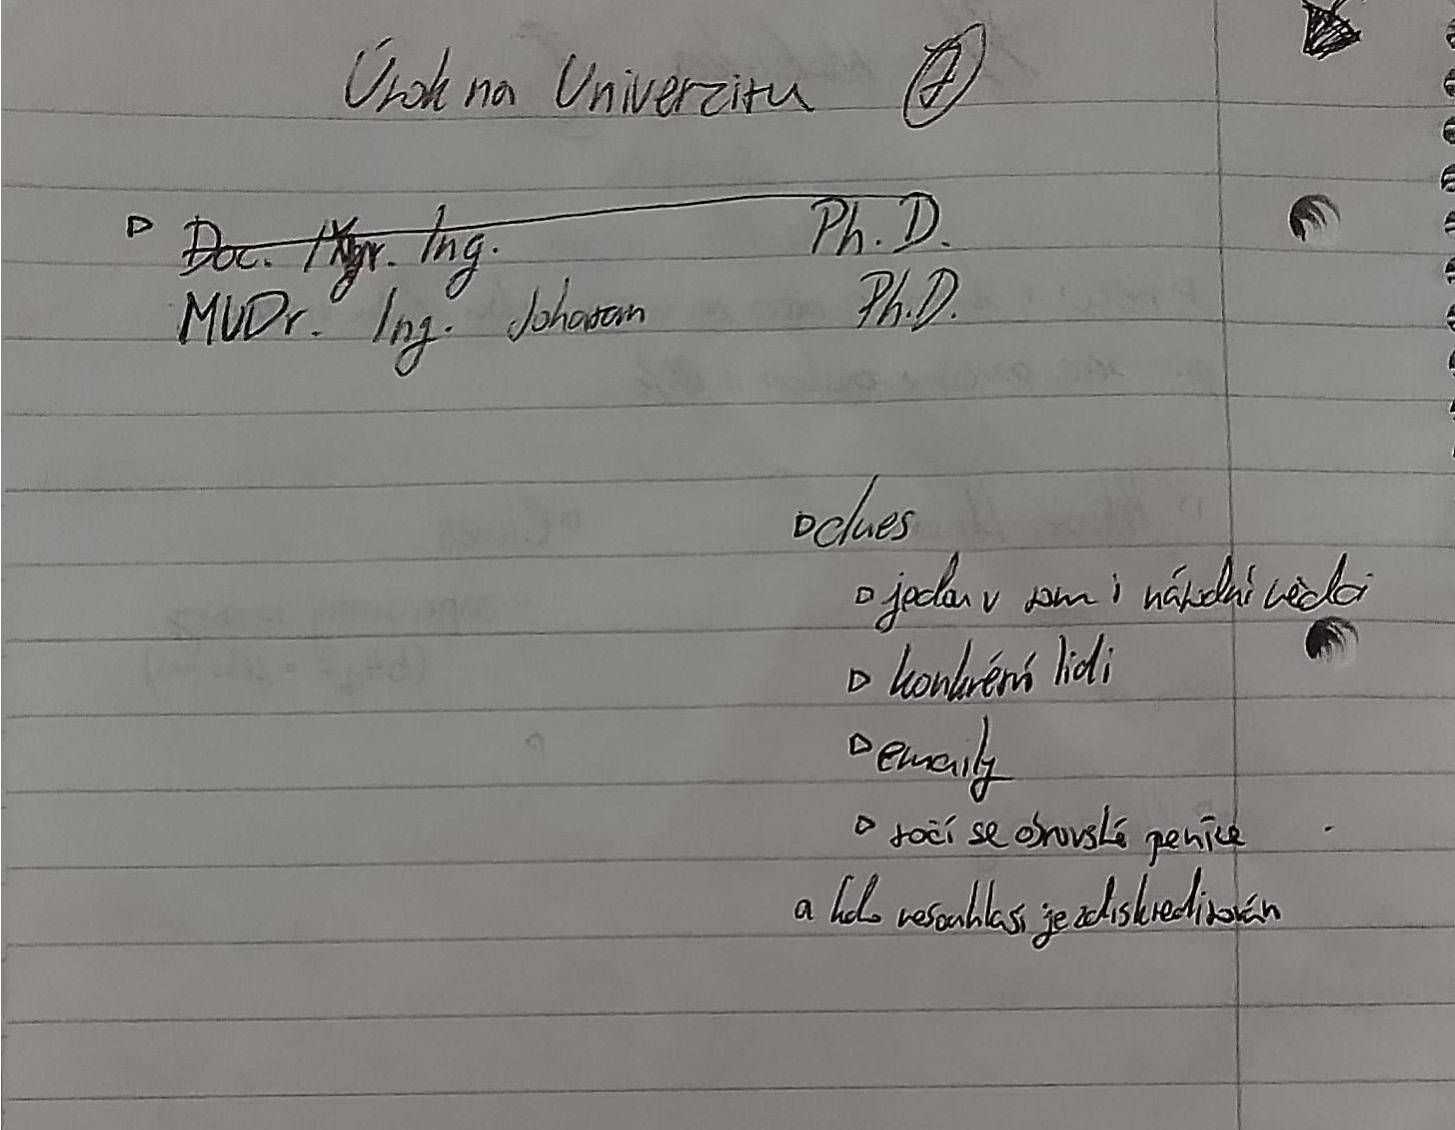 Úrok na Univerzitu 7
Doc. Mgr. Ing. Ph.D.
MVDr. Ing. Ph.D.
clues
jedou v tom i národní vědci
konkrétní lidi
emaily
točí se obrovské peníze
a kdo nesouhlasí je zdiskreditován